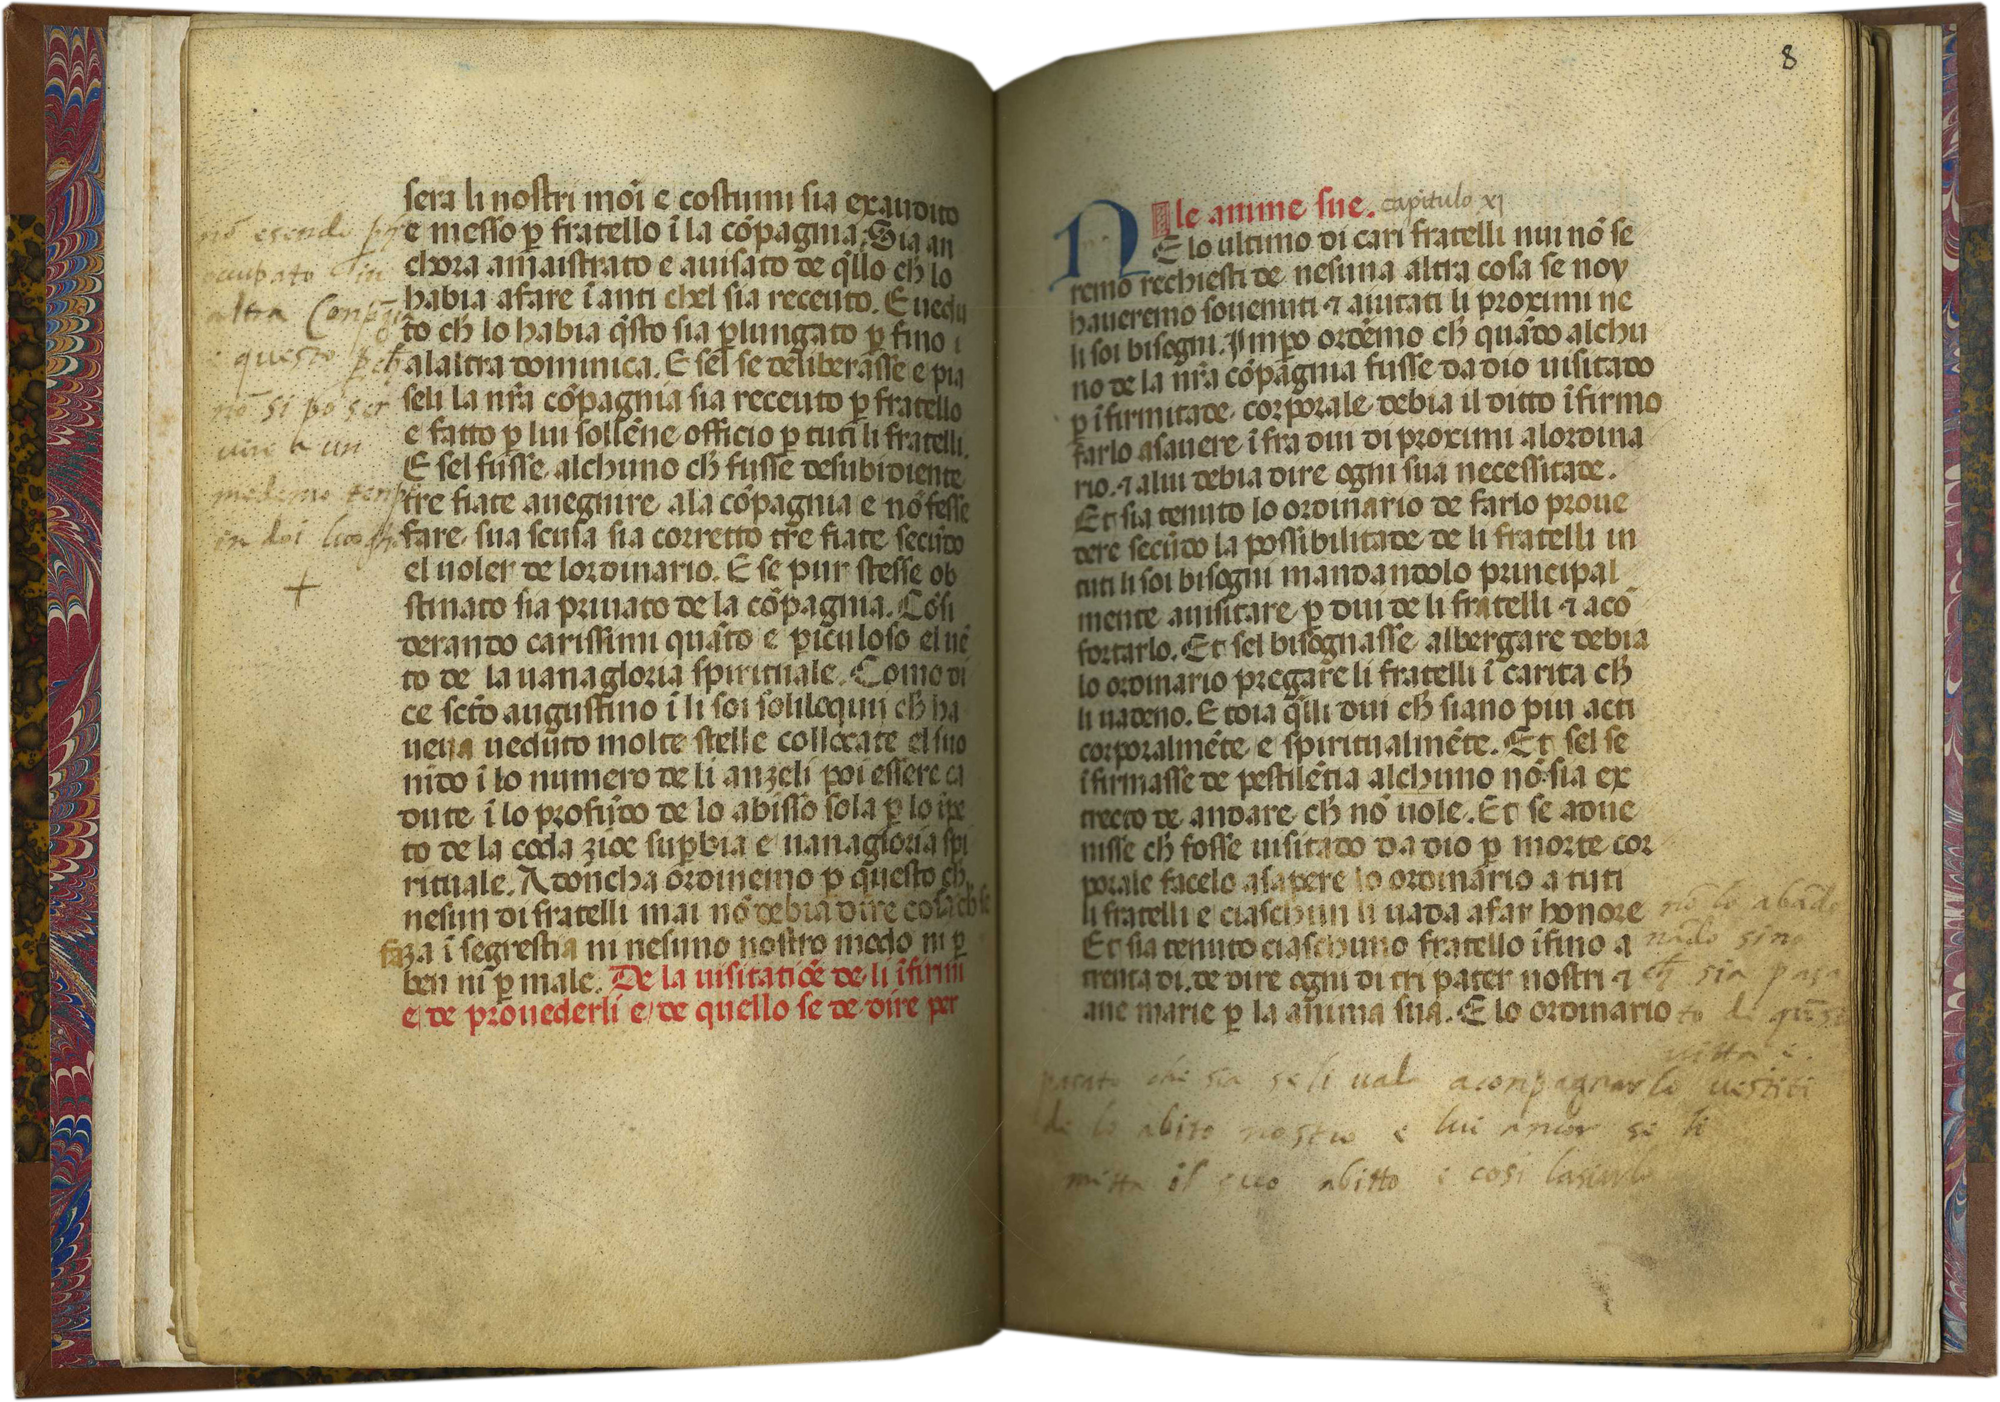 sera li nostri mōi e costumi sia exaudito
e messo p̱ fratello ī la cōpagnia. Sia an
chora amaistrato e auisato de q̄llo ch̄ lo
habia afare īanti chel sia receuto. E uedu
to ch̄ lo habia q̄sto sia p̱lungato p̱ fino i
alaltra dominica. E sel se deliberasse e pia
seli la nr̄a cōpagnia sia receuto p̱ fratello
e fatto p̱ lui sollēne officio p̱ tuti li fratelli.
E sel fusse alchuno ch̄ fusse desubidiente
tre fiate auegnire ala cōpagnia e nō fesse
fare sua scusa sia corretto tre fiate secūdo
el uoler de lordinario. E se pur stesse ob
stinato sia priuato de la cōpagnia. Cōsi
derando carissimi quāto e p̱iculoso el uē
to de la uanagloria spirituale. Como di
ce sctō augustino ī li soi soliloquii ch̄ ha
ueua ueduto molte stelle collocate el suo
nido ī lo numero de li anzeli poi essere ca
dute ī lo profūdo de lo abisso sola p̱ lo īpe
to de la coda zioe sup̱bia e uanagloria spi
rituale. Adoncha ordinemo p̱ questo ch̄
nesun di fratelli mai nō debia dire cosa ch̄ se
faza ī segrestia ni nesuno nostro modo ni p̱
ben ni p̱ male. De la uisitatiōe de li īfirmi
e de prouederli e de quello se de dire per
nō esendo
ocupato in
altra Conpagīa
e questo p̱ch̄
nō si po ser
uire a un
medemo tenp
in doi luoghi
+
8
le anime sue. capitulo xj
N E lo ultimo di cari fratelli nui nō se
remo rechiesti de nesuna altra cosa se noy
haueremo souenuti ⁊ aiutati li proximi ne
li soi bisogni. Imp̱o ordēmo ch̄ quādo alchu
no de la nr̄a cōpagnia fusse da dio uisitado
p̱ īfirmitade corporale debia il ditto īfirmo
farlo asauere īfra dui di proximi alordina
rio. ⁊ alui debia dire ogni sua necessitade.
Et sia tenuto lo ordinario de farlo proue
dere secūdo la possibilitade de li fratelli in
tuti li soi bisogni mandandolo principal
mente auisitare p̱ dui de li fratelli ⁊ acō
fortarlo. Et sel bisognasse albergare debia
lo ordinario pregare li fratelli ī carita ch̄
li uadeno. E toia q̄lli dui ch̄ siano piu acti
corporalmēte e spiritualmēte. Et sel se
īfirmasse de pestilētia alchuno nō sia ex
trecto de andare ch̄ nō uole. Et se adue
nisse ch̄ fosse uisitado da dio p̱ morte cor
porale facelo asapere lo ordinario a tuti
li fratelli e ciaschun li uada afar honore
Et sia tenuto ciaschuno fratello īfino a
trenta di de dire ogni di tri pater nostri ⁊
aue marie p̱ la anima sua. E lo ordinario
nō lo abādo
nādo sino
ch̄ sia pasa
to di questa
uitta e
pasato che sia se li uada aconpagnarlo uestiti
de lo abito nostro e lui ancor se li
mitta il suo abitto e cosi lasiarlo